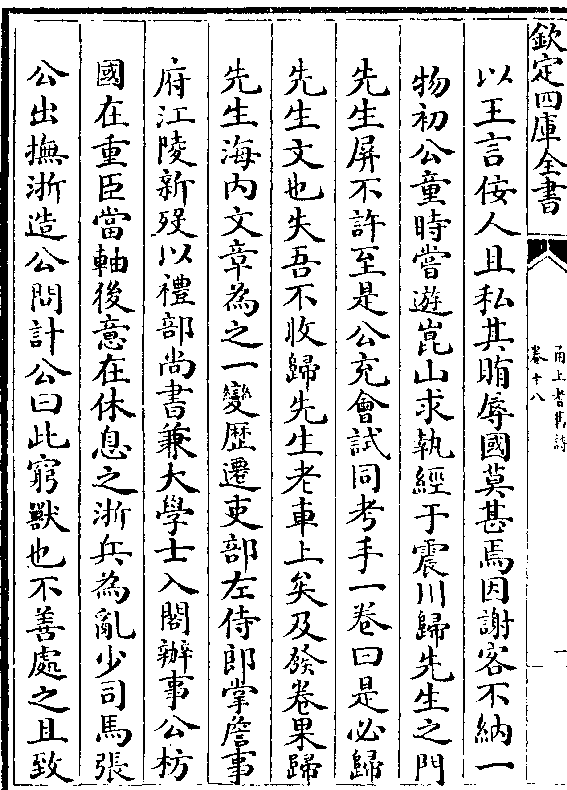 欽定四庫全書
甬上耆舊詩
卷十八
一
以王言侫人且私其賄辱國莫甚焉因謝客不納一
物初公童時嘗遊崑山求執經于震川歸先生之門
先生屏不許至是公充會試同考手一卷曰是必歸
先生文也失吾不收歸先生老車上矣及發卷果歸
先生海内文章為之一變歴遷吏部左侍郎掌詹事
府江陵新殁以禮部尚書兼大學士入閣辦事公枋
國在重臣當軸後意在休息之浙兵為亂少司馬張
公出撫浙造公問計公曰此窮獸也不善處之且致